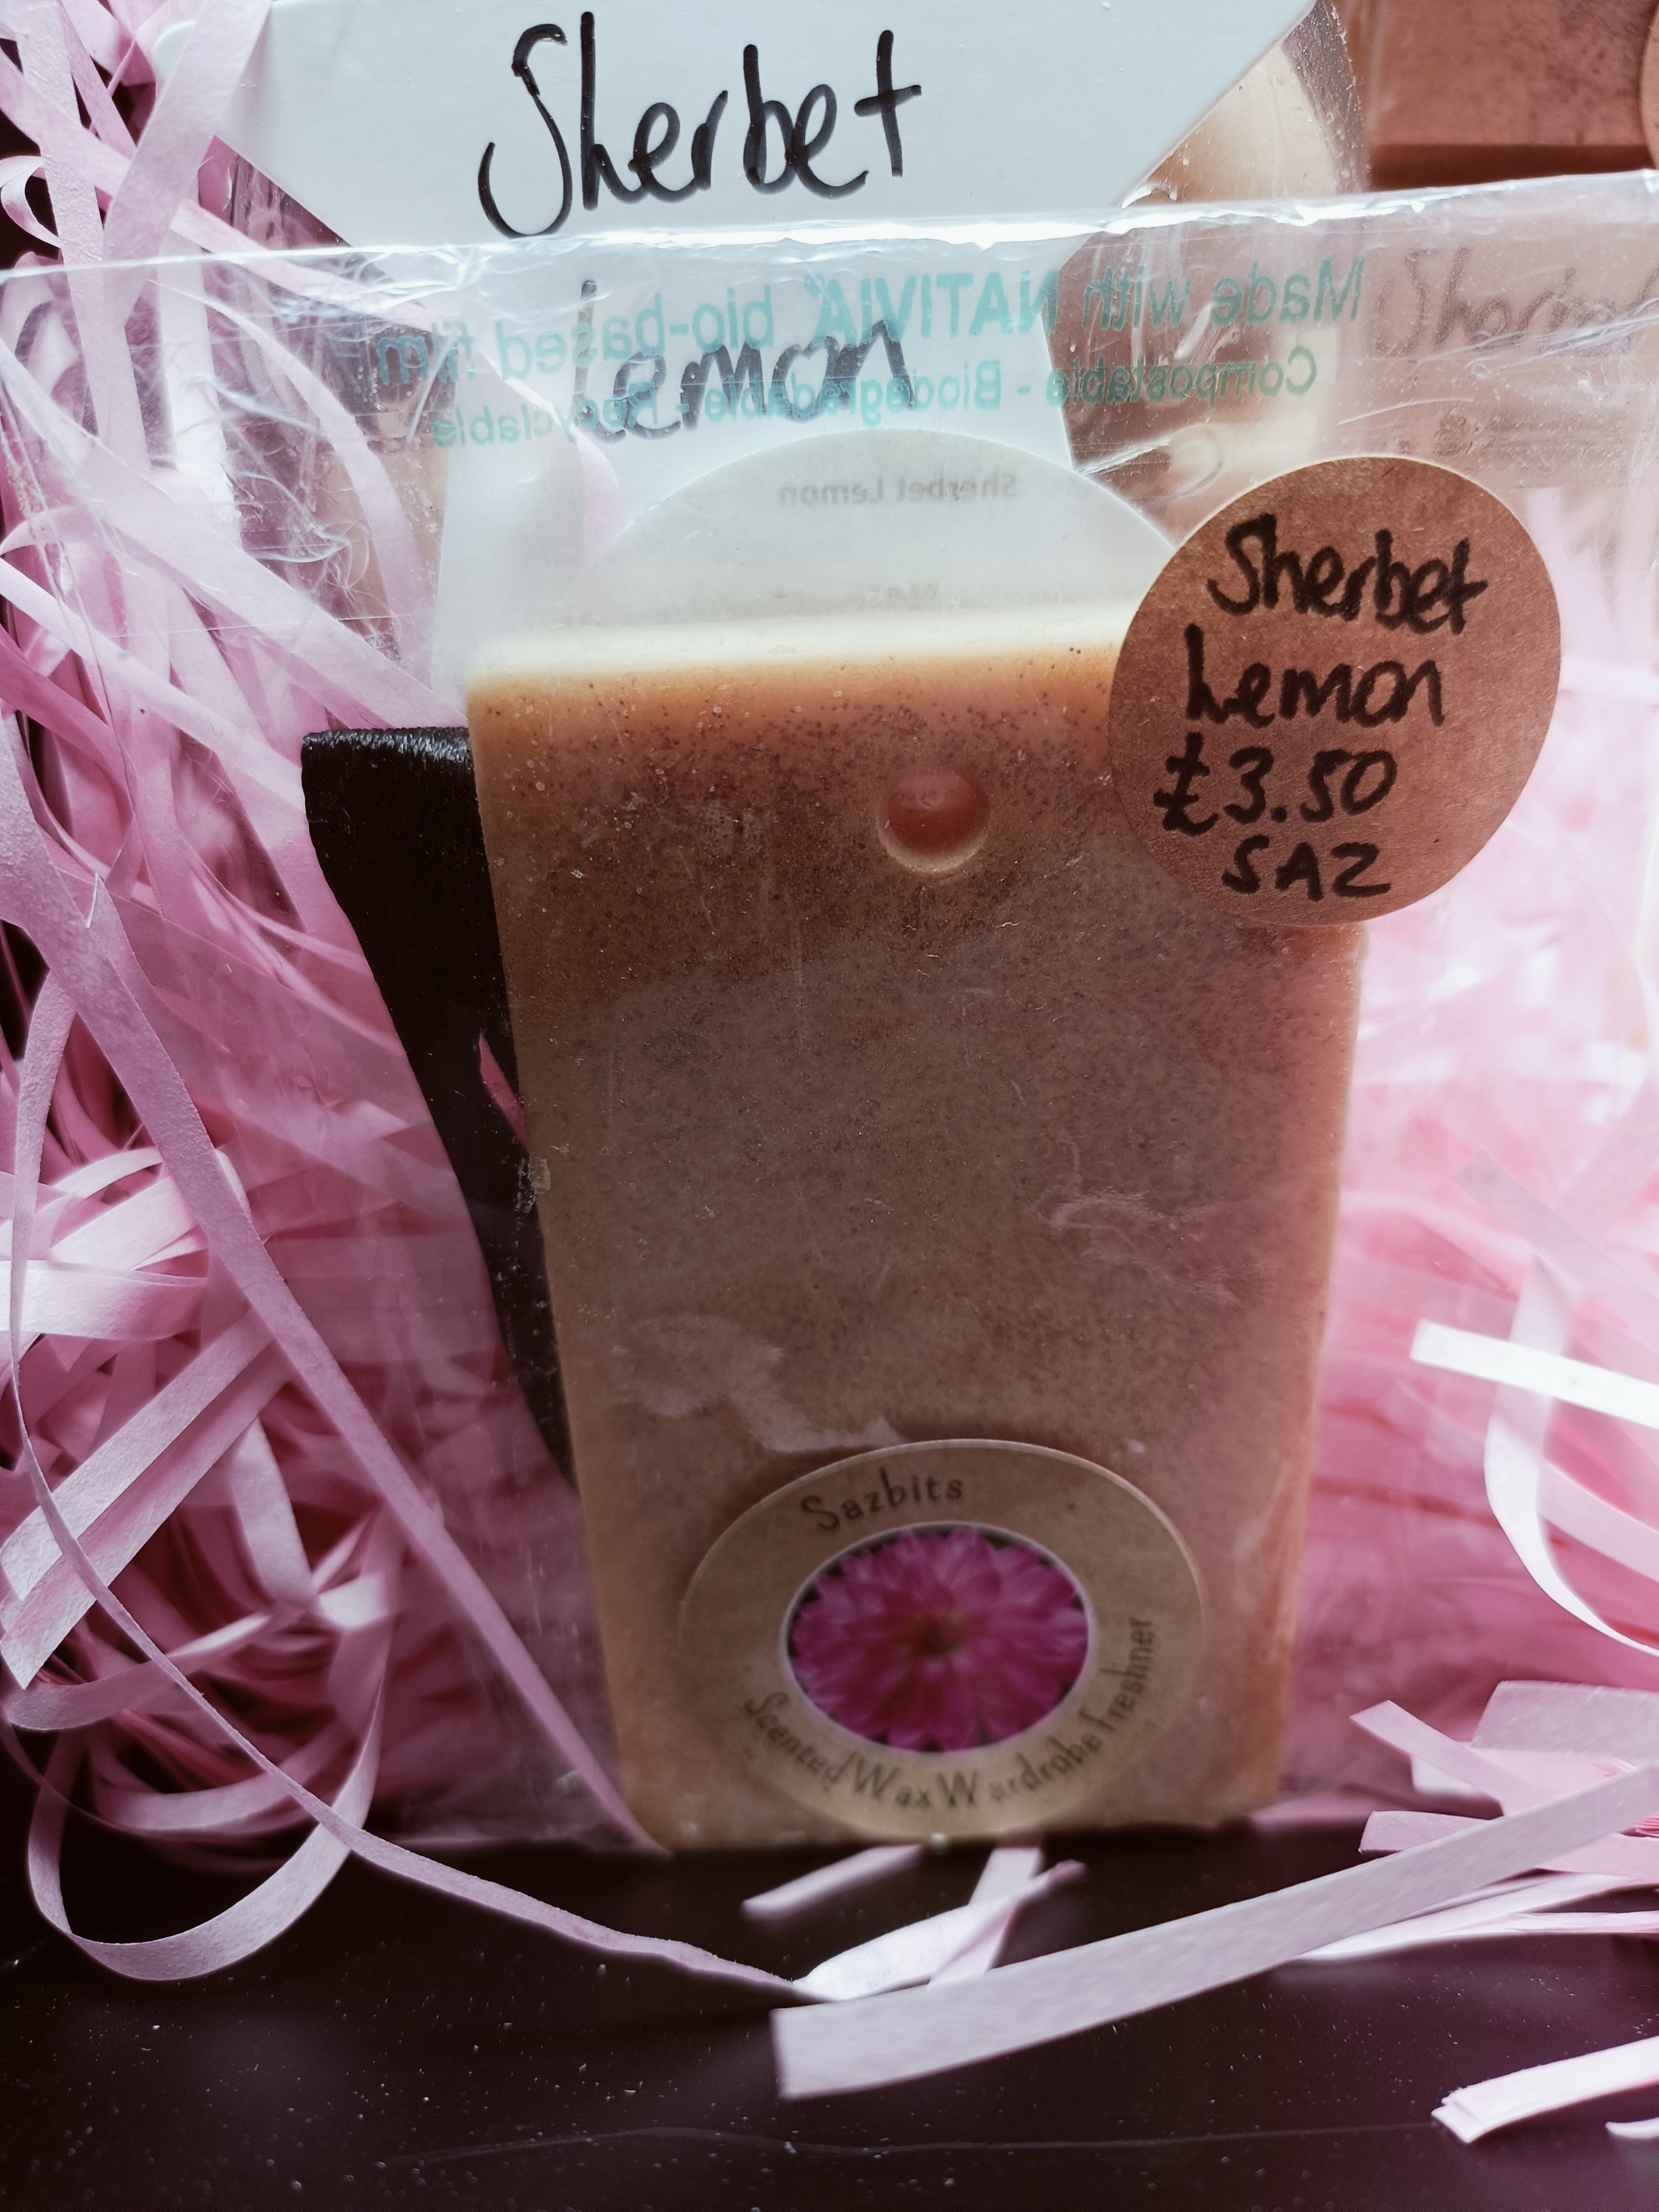 Sherbet
Lemon
Made with NATIVIA® bio-based film
Compostable - Biodegradable - Recyclable
Sherbet Lemon
Sherbet
Lemon
£3.50
SAZ
Sazbits
Scented Wax Wardrobe Freshner